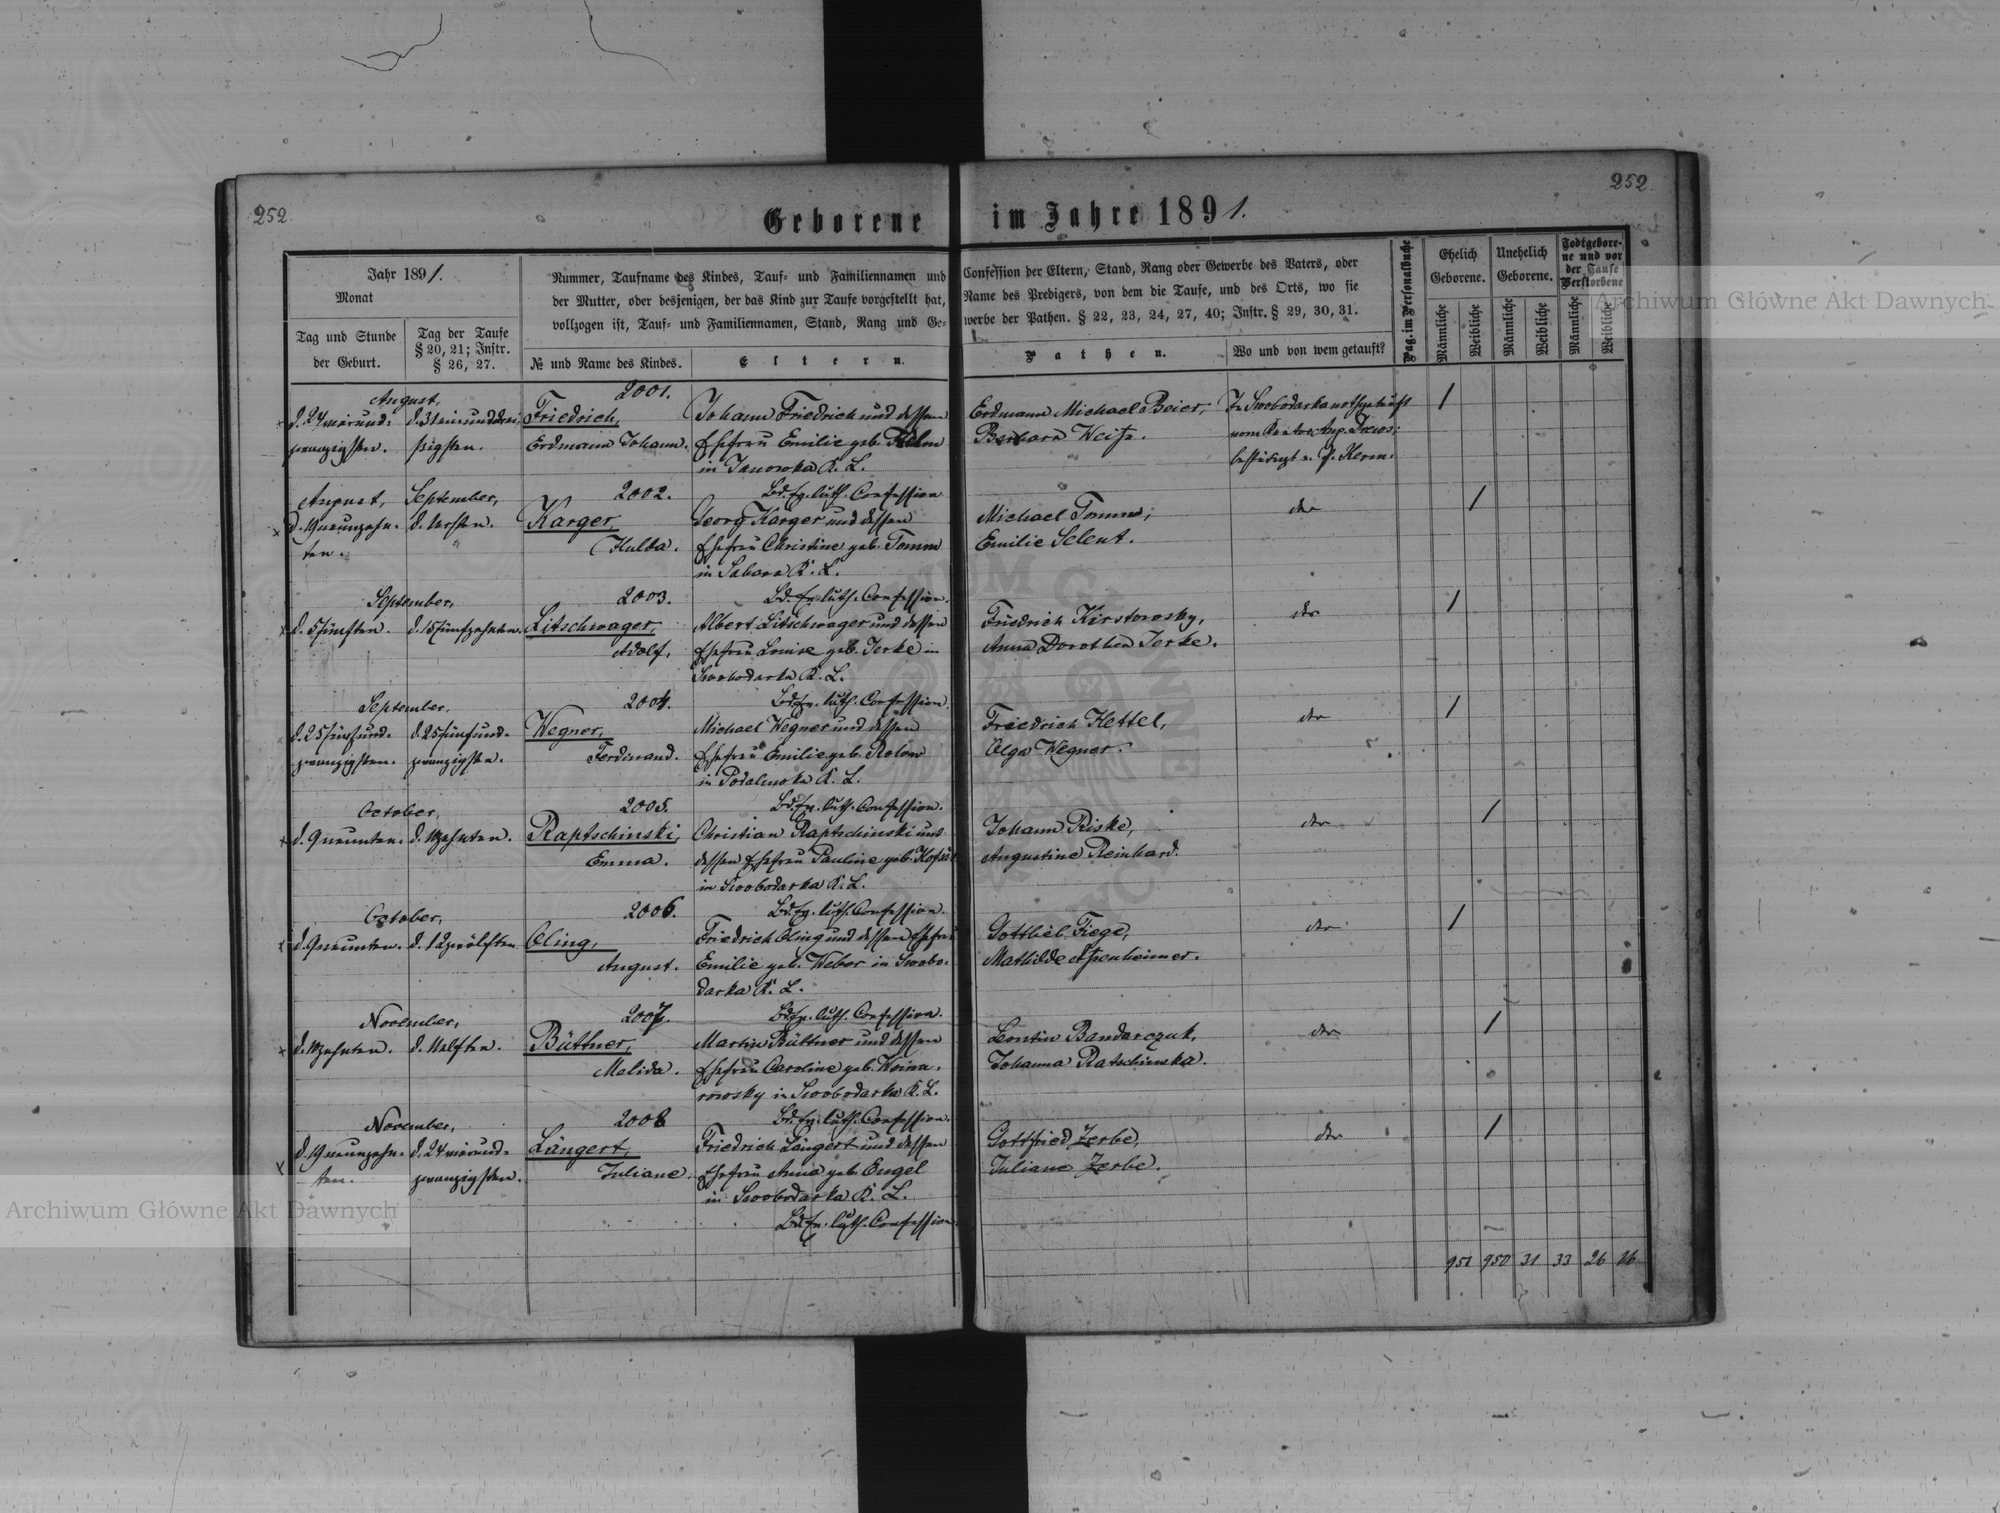 252.
252
Geborene im Jahre 1891.
Jahr 1891.
Monat
Tag und Stunde
der Geburt.
Tag der Taufe
§ 20, 21; Instr.
§ 26, 27.
Nummer, Taufname des Kindes, Tauf- und Familiennamen und
der Mutter, oder desjenigen, der das Kind zur Taufe vorgestellt hat,
vollzogen ist, Tauf- und Familiennamen, Stand, Rang und Ge-
№ und Name des Kindes.
Eltern.
Confession der Eltern, Stand, Rang oder Gewerbe des Vaters, oder
Name des Predigers, von dem die Taufe, und des Orts, wo sie
werbe der Pathen. § 22, 23, 24, 27, 40; Instr. § 29, 30, 31.
Pathen.
Wo und von wem getauft?
Pag. im Personalbuche
Ehelich
Geborene.
Unehelich
Geborene.
Todtgebore-
ne und vor
der Taufe
Verstorbene
Männliche
Weibliche
Männliche
Weibliche
Männliche
Weibliche
August,
d. 24 vierund-
zwanzigsten.
d. 31 einunddrei-
ßigsten.
2001.
Friedrich,
Erdmann Johann.
Johann Friedrich und dessen
Ehefrau Emilie geb.
in Janowka K. L.
Bd. Ev. luth. Confession
Erdmann Michael Beier,
Barbara Weiß.
In Swobodarka nothgetauft
vom Kantor Aug. Drews;
bestätigt v. P. Kerm.
1
August,
d. 19 neunzehn-
ten.
September,
d. 1 ersten.
2002.
Karger,
Hulda.
Georg Karger und dessen
Ehefrau Christine geb. Tomm
in Sabora K. L.
Bd. Ev. luth. Confession.
Michael Tomm,
Emilie Selent.
der
1
September,
d. 5 fünften.
d. 15 fünfzehnten.
2003.
Litschwager,
Adolf.
Albert Litschwager und dessen
Ehefrau Louise geb. Jerke in
Swobodarka K. L.
Bd. Ev. luth. Confession.
Friedrich Kirstowsky,
Anna Dorothea Jerke.
der
1
September,
d. 25 fünfund-
zwanzigsten.
d. 25 fünfund-
zwanzigsten.
2004.
Wegner,
Ferdinand.
Michael Wegner und dessen
Ehefrau Emilie geb. Rolow
in Podalowka K. L.
Bd. Ev. luth. Confession.
Friedrich Kettel,
Olga Wegner.
der
1
October,
d. 9 neunten.
d. 10 zehnten.
2005.
Raptschinski,
Emma.
Christian Raptschinski und
dessen Ehefrau Pauline geb.
in Swobodarka K. L.
Bd. Ev. luth. Confession.
Johann Riske,
Augustine Reinhard.
der
1
October,
d. 9 neunten.
d. 12 zwölften.
2006.
Oling,
August.
Friedrich Oling und dessen Ehefrau
Emilie geb. Weber in Swobo-
darka K. L.
Bd. Ev. luth. Confession.
Gottlieb Fiege,
Mathilde Assenheimer.
der
1
November,
d. 10 zehnten.
d. 11 elften.
2007.
Büttner,
Malida.
Martin Büttner und dessen
Ehefrau Caroline geb. Woina-
rowsky in Swobodarka K. L.
Bd. Ev. luth. Confession.
Leontin Bandarczuk,
Johanna Ratschinska.
der
1
November,
d. 19 neunzehn-
ten.
d. 24 vierund-
zwanzigsten.
2008
Längert,
Juliane.
Friedrich Längert und dessen
Ehefrau Anna geb. Engel
in Swobodarka K. L.
Bd. Ev. luth. Confession
Gottfried Zerbe,
Juliane Zerbe.
der
1
951 950 31 33 26 16
Archiwum Główne Akt Dawnych
Archiwum Główne Akt Dawnych